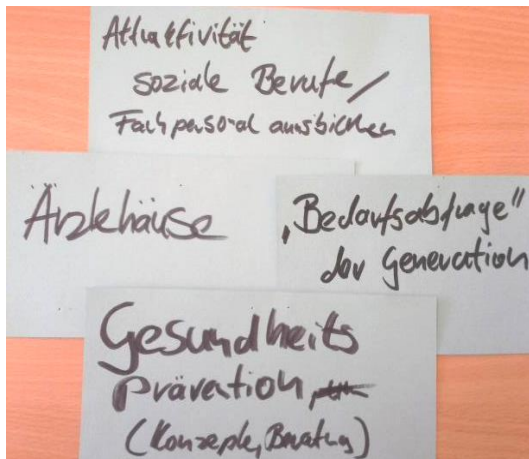 Attraktivität
soziale Berufe /
Fachpersonal ausbilden
Ärztehäuser
„Bedarfsabfrage"
der Generation
Gesundheits
prävention
(Konzepte, Beratung)